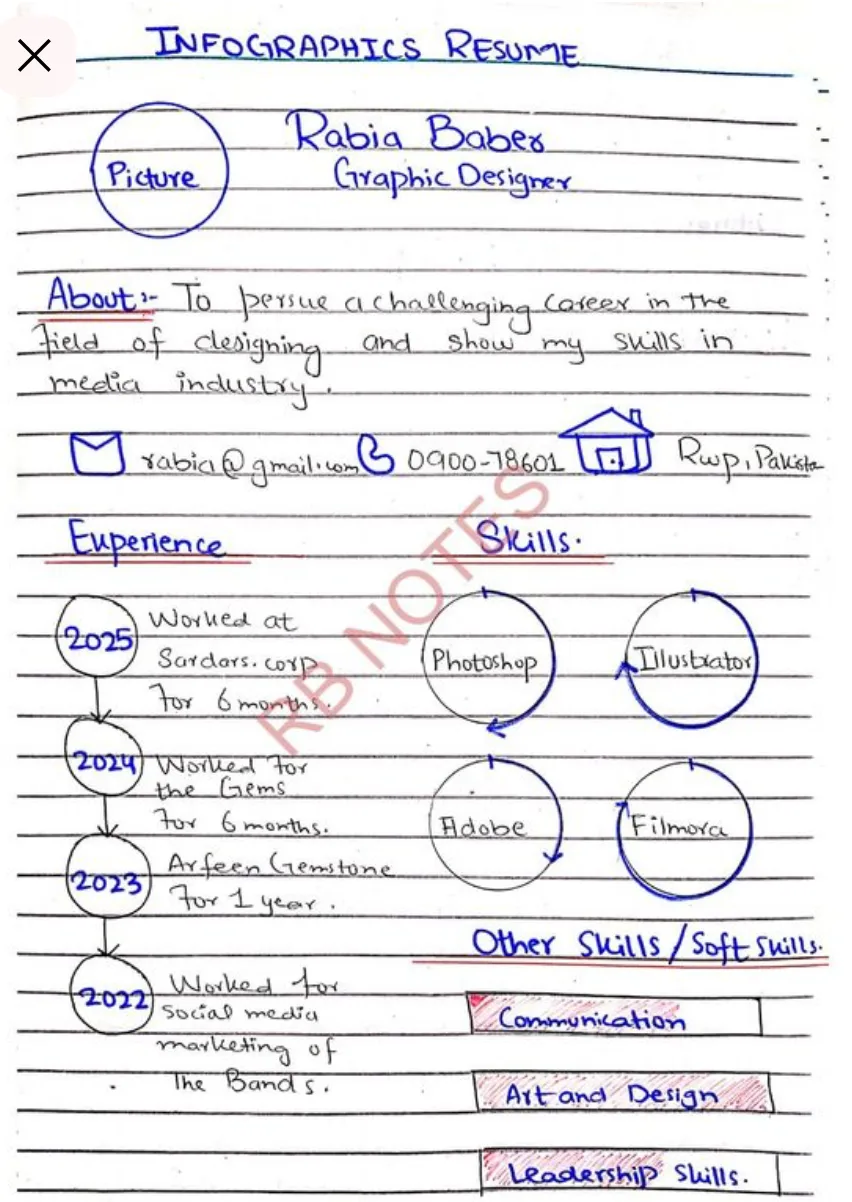 INFOGRAPHICS RESUME
Rabia Baber
Graphic Designer
Picture
About:- To persue a challenging career in the
field of designing and show my skills in
media industry.
rabia@gmail.com 0900-78601 Rwp, Pakistan
Experience
2025 Worked at
Sardars.corp
For 6 months.
2024 Worked for
the Gems
For 6 months.
2023 Arfeen Gemstone
For 1 year.
2022 Worked for
social media
marketing of
The Bands.
Skills.
Photoshop Illustrator
Adobe Filmora
Other Skills / Soft Skills.
Communication
Art and Design
Leadership Skills.
RB NOTES